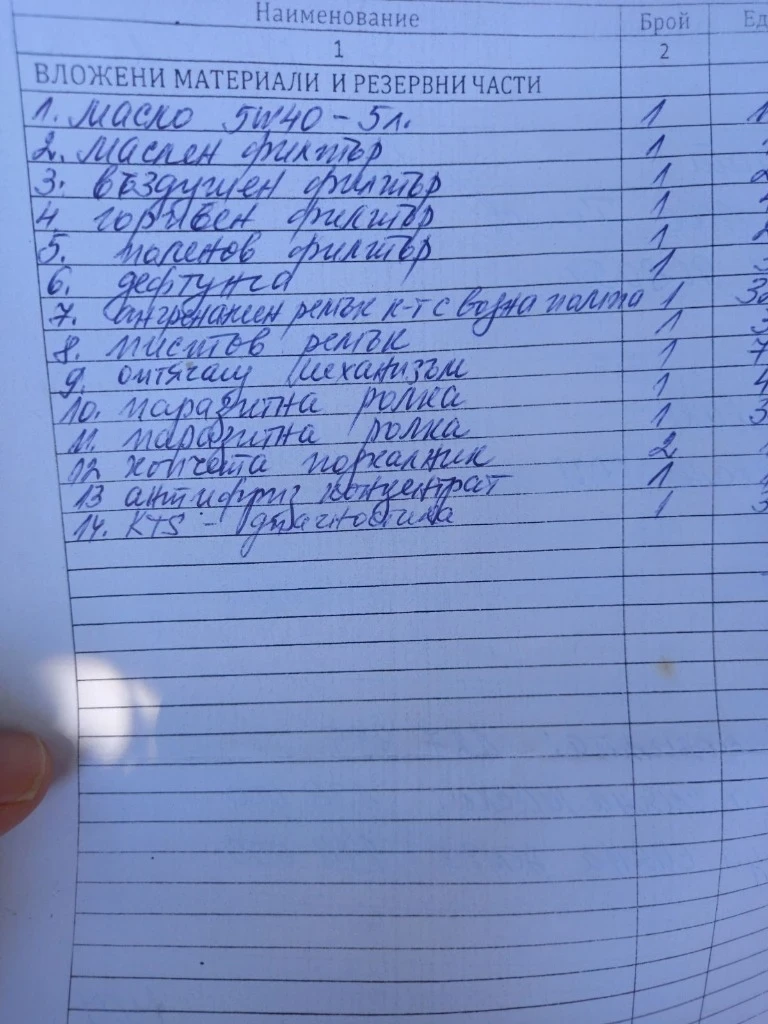 Наименование Брой Ед
1 2
ВЛОЖЕНИ МАТЕРИАЛИ И РЕЗЕРВНИ ЧАСТИ
1. Масло 5w40 - 5л. 1 1
2. Маслен филтър 1
3. въздушен филтър 1 2
4. горивен филтър 1
5. поленов филтър 1 2
6. дефтунга 1 3
7. ангренажен ремък к-т с водна помпа 1 3
8. пистов ремък 1 3
9. опъващ механизъм 1 7
10. паразитна ролка 1 4
11. паразитна ролка 1 3
12 копчета подкалник 2 1
13 антифриз концентрат 1
14. KTS - диагностика 1 3